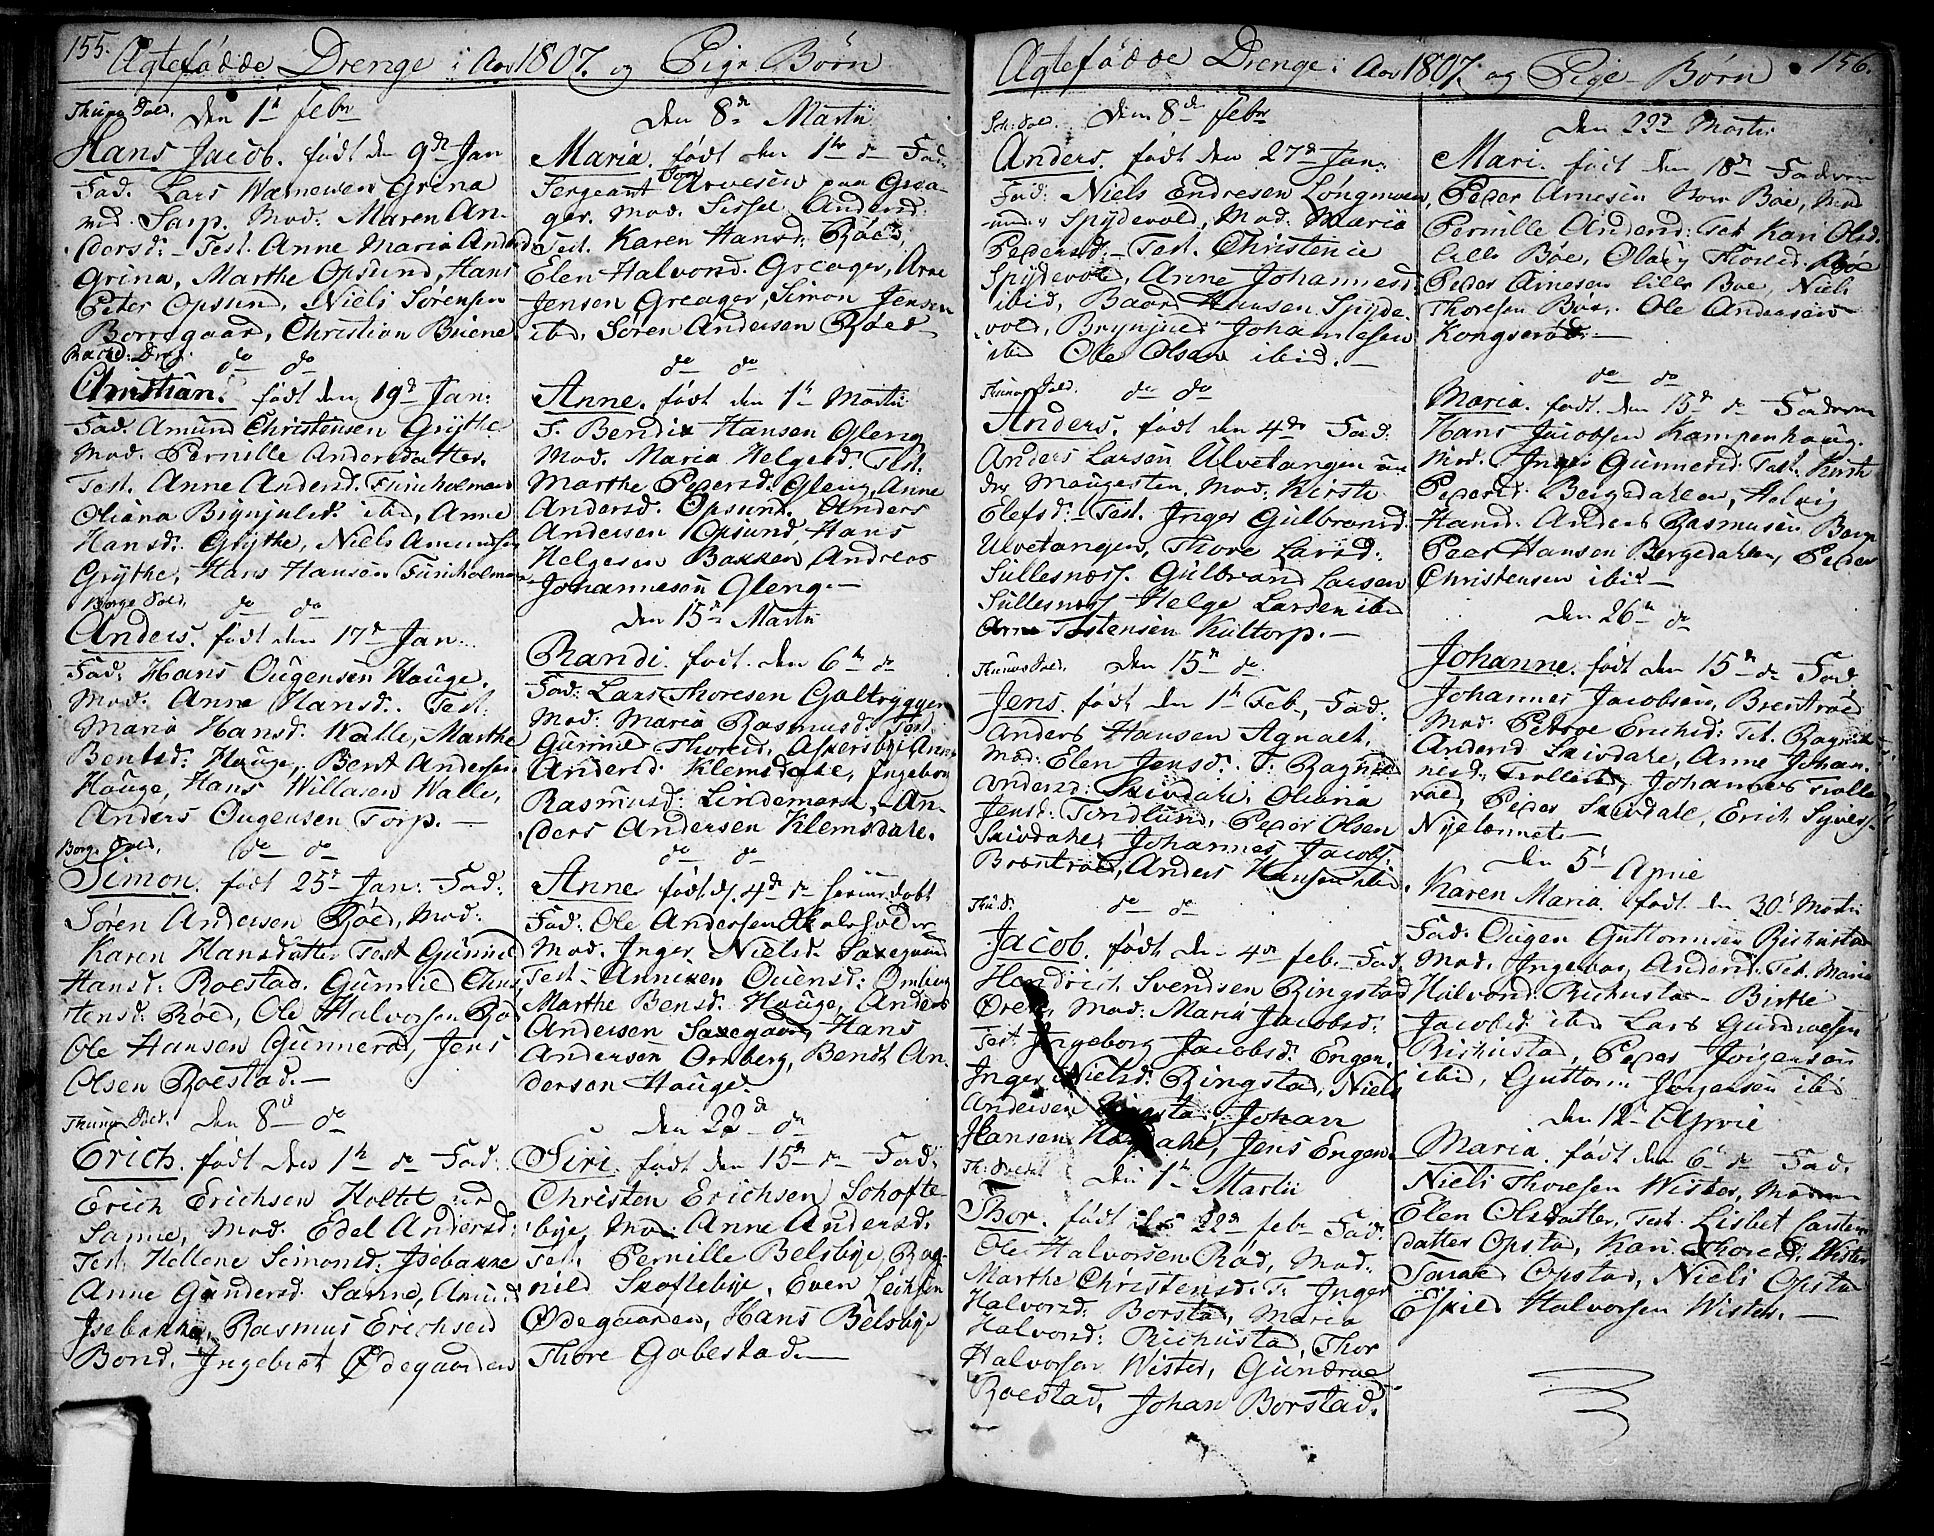 155.
Ægtefødde Drenge i Aar 1807. og Pige Børn
Thune Sold.
Den 1te Febr
Hans Jacob. født den 9de Jan
Fad. Lars Grina
Sarp. Mod. Maren An-
dersd: Test. Anne Maria Andersd
Grina, Marthe Opsund, Hans
Peter Opsund, Niels Sørensen
Borregaard, Christian
do do
Christian. født den 19de Jan:
Fad. Amund Christensen Grythe
Mod. Pernille Andersdatter.
Test. Anne Andersd. Furuholmen
Oliana Brynjulsd. ibid, Anne
Hansd: Grythe, Niels Amundsen
Grythe, Hans Hansen Furuholmen
Borge Sold. do do
Anders. født den 17de Jan:
Fad: Hans Ougensen Houge.
Mod. Anne Hansd. Test:
Maria Hansd: Kalle, Marthe
Bentsd: Houge, Bent Andersen
Houge, Hans Willasen Walle,
Anders Ougensen Torp.—
Borge Sold. do do
Simon. født 25de Jan: Fad:
Søren Andersen Røed, Mod:
Karen Hansdatter Test Gunnild
Hansd: Roestad. Gunnild Chris
tensd: Røed, Ole Halvorsen Rø
Ole Hansen Gunnerød, Jens
Olsen Roestad.—
Thune Sold. Den 8de do
Erich. født den 1te do Fad:
Erich Erichsen Holtet und
Sanne, Mod. Edel Andersd:
Test. Hellene Simonsd. Isebakke
Anne Gundersd. Sanne, Amund
Isebakke, Rasmus Erichsen
Bond. Ingebret Ødegaarden
Den 8de Martii
Maria. født den 1te do Fad.
Sergeant Arvesen paa Grea-
ger. Mod. Sissel Andersd:
Test. Karen Hansd: Røed,
Elen Halvorsd. Greager, Arne
Jensen Greager, Simon Jensen
ibid, Søren Andersen Røed—
do do
Anne. født den 1te Martii
F. Bendix Hansen Gleng
Mod. Maria Helgesd. Test.
Marthe Pedersd: Gleng, Anne
Andersd. Opsund. Anders
Andersen Opsund, Hans
Helgesen Bakken Andreas
Johannesen Gleng.—
Den 15de Martii
Randi. født. den 6te do
Fad: Lars Thoresen Galtrygger
Mod: Maria Rasmusd: Test.
Gunnild Thoresd. Askersbye Anne
Andersd. Klemsdahl, Ingeborg
Rasmusd: Lindemark, An-
ders Andersen Klemsdale.
do do
Anne født d. 4de do
Fad: Ole Andersen
Mod. Inger Nielsd. Saxegaard
Test. Anniken Ouensd: Ornberg
Marthe Bensd: Houge, Anders
Andersen Saxegaard, Hans
Andersen Ornberg, Bendt An-
dersen Houge.
Den 22de do
Siri. født den 15de do Fad:
Christen Erichsen Schofte-
bye, Mod: Anne Andersd.
Test. Pernille Belsbye, Rag-
nild Skoftebye. Even
Ødegaarden, Hans Belsbye
Thore Gabestad—
156.
Ægtefødde Drenge i Aar 1807. og Pige Børn
Den 8de Febr
Anders. født den 27de Jan:
Fad: Niels Endresen Longmoen
under Spydevold, Mod. Maria
Pedersd:—Test. Christence
Spydevold, Anne Johannesd
ibid, Baar Hansen Spyde-
vold, Brynjuel Johannesen
ibid Ole Olsen ibid.—
Thune Sold. do do
Anders. født den 4de Fad:
Anders Larsen Ulvetangen un
der Maugesten. Mod: Kirsti
Elefsd:—Test. Inger Gulbrand
Ulvetangen, Thore Larsd:
Sullesness. Gulbrand Larsen
Sullesness, Helge Larsen ibid
Arne Tostensen Kultorp.—
Thunes Sold. Den 15de do
Jens. født den 1te Feb., Fad:
Anders Hansen Agnalt.
Mod: Elen Jensd. T. Ragnild
Andersd: Skivdale. Oliana
Jensd: Tindlund, Peder Olsen
Skivdale, Johannes Jacobs.
Brentrød, Anders Hansen ibid
do do
Jacob. født den 4de feb. Fad.
Hendrich Svendsen Ringstad
Øren, Mod: Maria Jacobsd:
Test. Ingeborg Jacobsd: Engen.
Inger Nielsd: Ringstad, Niels
Andersen Ringstad, Johan
Hansen, Jens Engen.
Den 1te Martii
Thor. født den 22de febr Fad:
Ole Halvorsen Rød, Mod.
Marthe Christensd: T. Inger
Halvorsd: Borstad, Maria
Halvorsd: Richustad, Thor
Halvorsen Wister, Gundroe
Roestad, Johan Borstad.
Den 22de Martii
Mari. født den 18de Faderen
Peder Arnesen Bøe, Mod
Pernille Andersd: Test Kari Olsd.
lille Bøe, Olaug Thoresd. Bøe
Peder Arnesen lille Bøe, Niels
Thoresen Bøe. Ole Andersen
Kongserød.—
do do
Maria. født. den 15de do Faderen
Hans Jacobsen Kampenhoug.
Mod. Inger Gunnersd: Test. Kirsti
Pedersd. Bergedalen, Helvig
Hansd. Anders Rasmusen Berge
Peder Hansen Bergedalen, Peder
Christensen ibid—
Den 26de do
Johanne. født den 15de do Fad,
Johannes Jacobsen, Brentrød
Mod: Petroe Erichsd: Test. Ragnild
Andersd Skivdale, Anne Johan-
nesd: Trollerød, Johannes Trolle
rød, Peder Skivdale, Erich Syvers-
Nyelænnet—
Den 5te Aprie
Karen Maria født den 30te Martii
Fad. Ougen Guttormsen Richustad
Mod. Ingebor Andersd. Test. Maria
Halvorsd: Richustad Birthe
Jacobsd ibid Lars Gundroesen
Richustad, Peder Jørgensen
ibid, Guttorm Jørgensen ibid
Den 12te Aprie
Maria. født den 6te do Fad.
Niels Thoresen Wister, Moderen
Elen Olsdatter, Test. Lisbet Carstens
datter Opstad, Kari Thoresd: Wister
Opstad, Niels Opstad
Eskild Halvorsen Wister.—